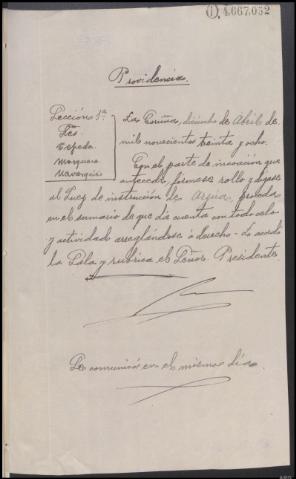 (1) 4.667.052
Providencia
Sección 1ª
Sres
Cepeda
Marquina
La Coruña, dieciocho de Abril de
mil novecientos treinta y ocho.
Con el parte de incoación que
antecede, fórmese rollo y dígase
al Juez de instrucción de Arzúa, proceda
en el sumario de que da cuenta con todo celo
y actividad arreglándose a derecho = Lo acordó
la Sala y rubrica el Señor Presidente
Se comunicó en el mismo día